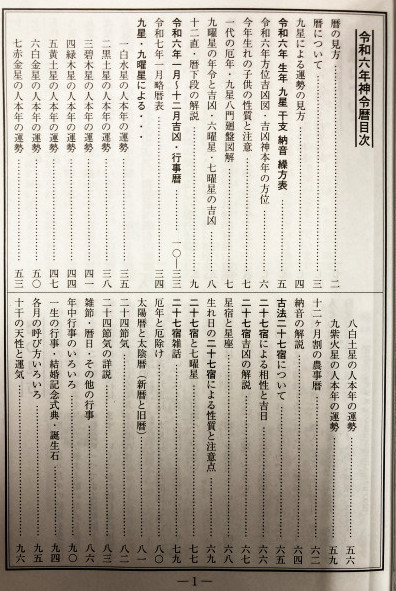 令和六年神令暦目次
暦の見方 二
暦について 三
九星による運勢の見方 四
令和六年 生年 九星 干支 納音 繰方表 五
令和六年方位吉凶図・吉凶神本年の方位 六
今年生れの子供の性質と注意 七
一代の厄年・九星八門廻盤図解 七
九曜星の年令と吉凶・六曜星・七曜星の吉凶 八
十二直・暦下段の解説 九
令和六年一月〜十二月吉凶・行事暦 一〇―三三
令和七年一月略暦表 三四
九星・九曜星による・・・
一白水星の人本年の運勢 三五
二黒土星の人本年の運勢 三八
三碧木星の人本年の運勢 四一
四緑木星の人本年の運勢 四四
五黄土星の人本年の運勢 四七
六白金星の人本年の運勢 五〇
七赤金星の人本年の運勢 五三
八白土星の人本年の運勢 五六
九紫火星の人本年の運勢 五九
十二ヶ月割の農事暦 六二
納音の解説 六四
古法二十七宿について 六五
二十七宿による相性と吉日 六六
二十七宿吉凶の解説 六七
星宿と星座 六八
生れ日の二十七宿による性質と注意点 六九
二十七宿と七曜星 七七
二十七宿雑話 七九
厄年と厄除け 八〇
太陽暦と太陰暦（新暦と旧暦） 八一
二十四節気 八二
二十四節気の詳説 八三
雑節・暦日・その他の行事 八六
年中行事のいろいろ 九〇
一生の行事・結婚記念式典・誕生石 九四
各月の呼び方いろいろ 九五
十干の天性と運気 九六
―1―